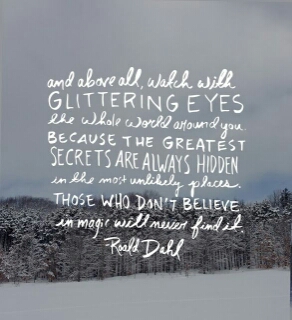 and above all, watch with
GLITTERING EYES
the whole world around you
BECAUSE THE GREATEST
SECRETS ARE ALWAYS HIDDEN
in the most unlikely places.
THOSE WHO DON'T BELIEVE
in magic will never find it.
Roald Dahl